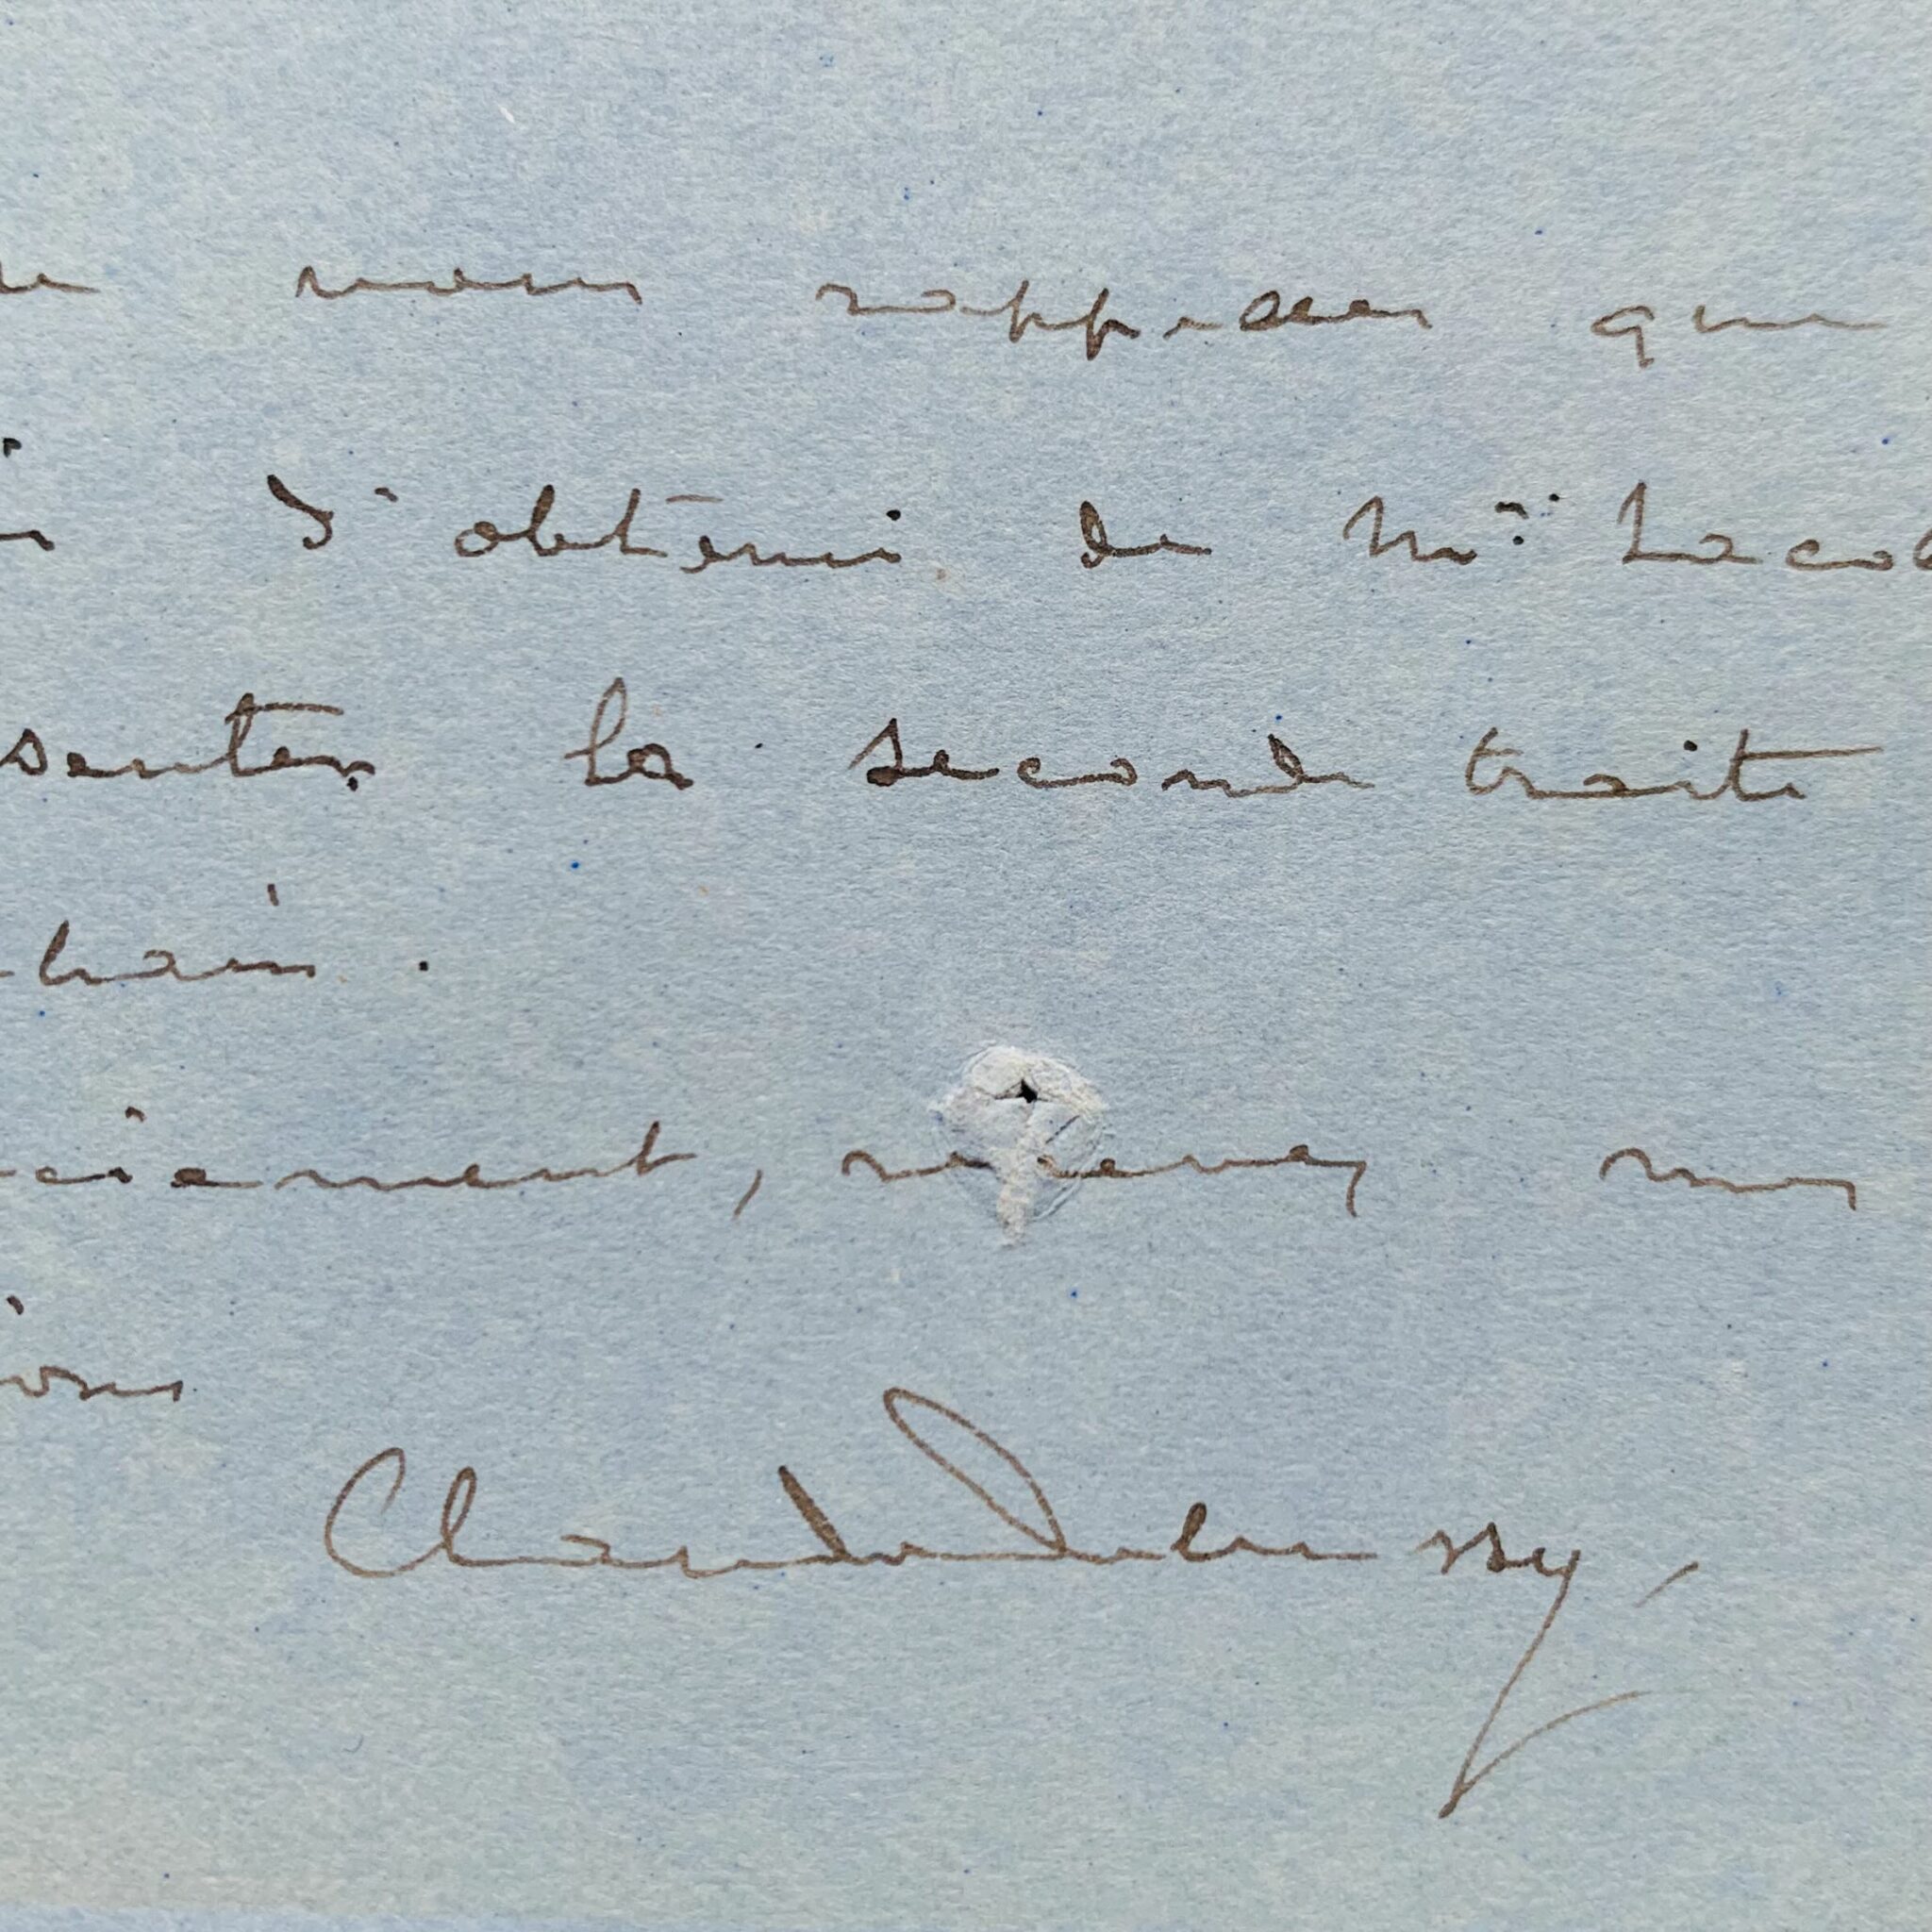 vous rappeler que
d'obtenir de Mr Lacob
senter la seconde traite
hain.
ciement, recevez mes
ions
Claude Debussy